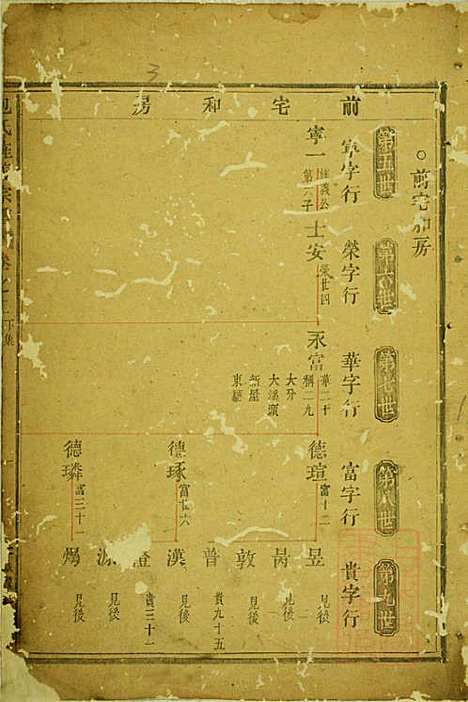 前宅和房
○前宅和房
第五世
第六世
第七世
第八世
第九世
寧字行
榮字行
華字行
富字行
貴字行
寧一
第六子
士安
榮廿四
永富
華二十
稱二九
大分
大溪頭
新屋
東經
德瑄
富十二
德琢
富廿六
德璘
富三十一
昱
見後
昺
敦
見後
普
貴九十五
漢
見後
澄
貴三十一
源
見後
煬
見後